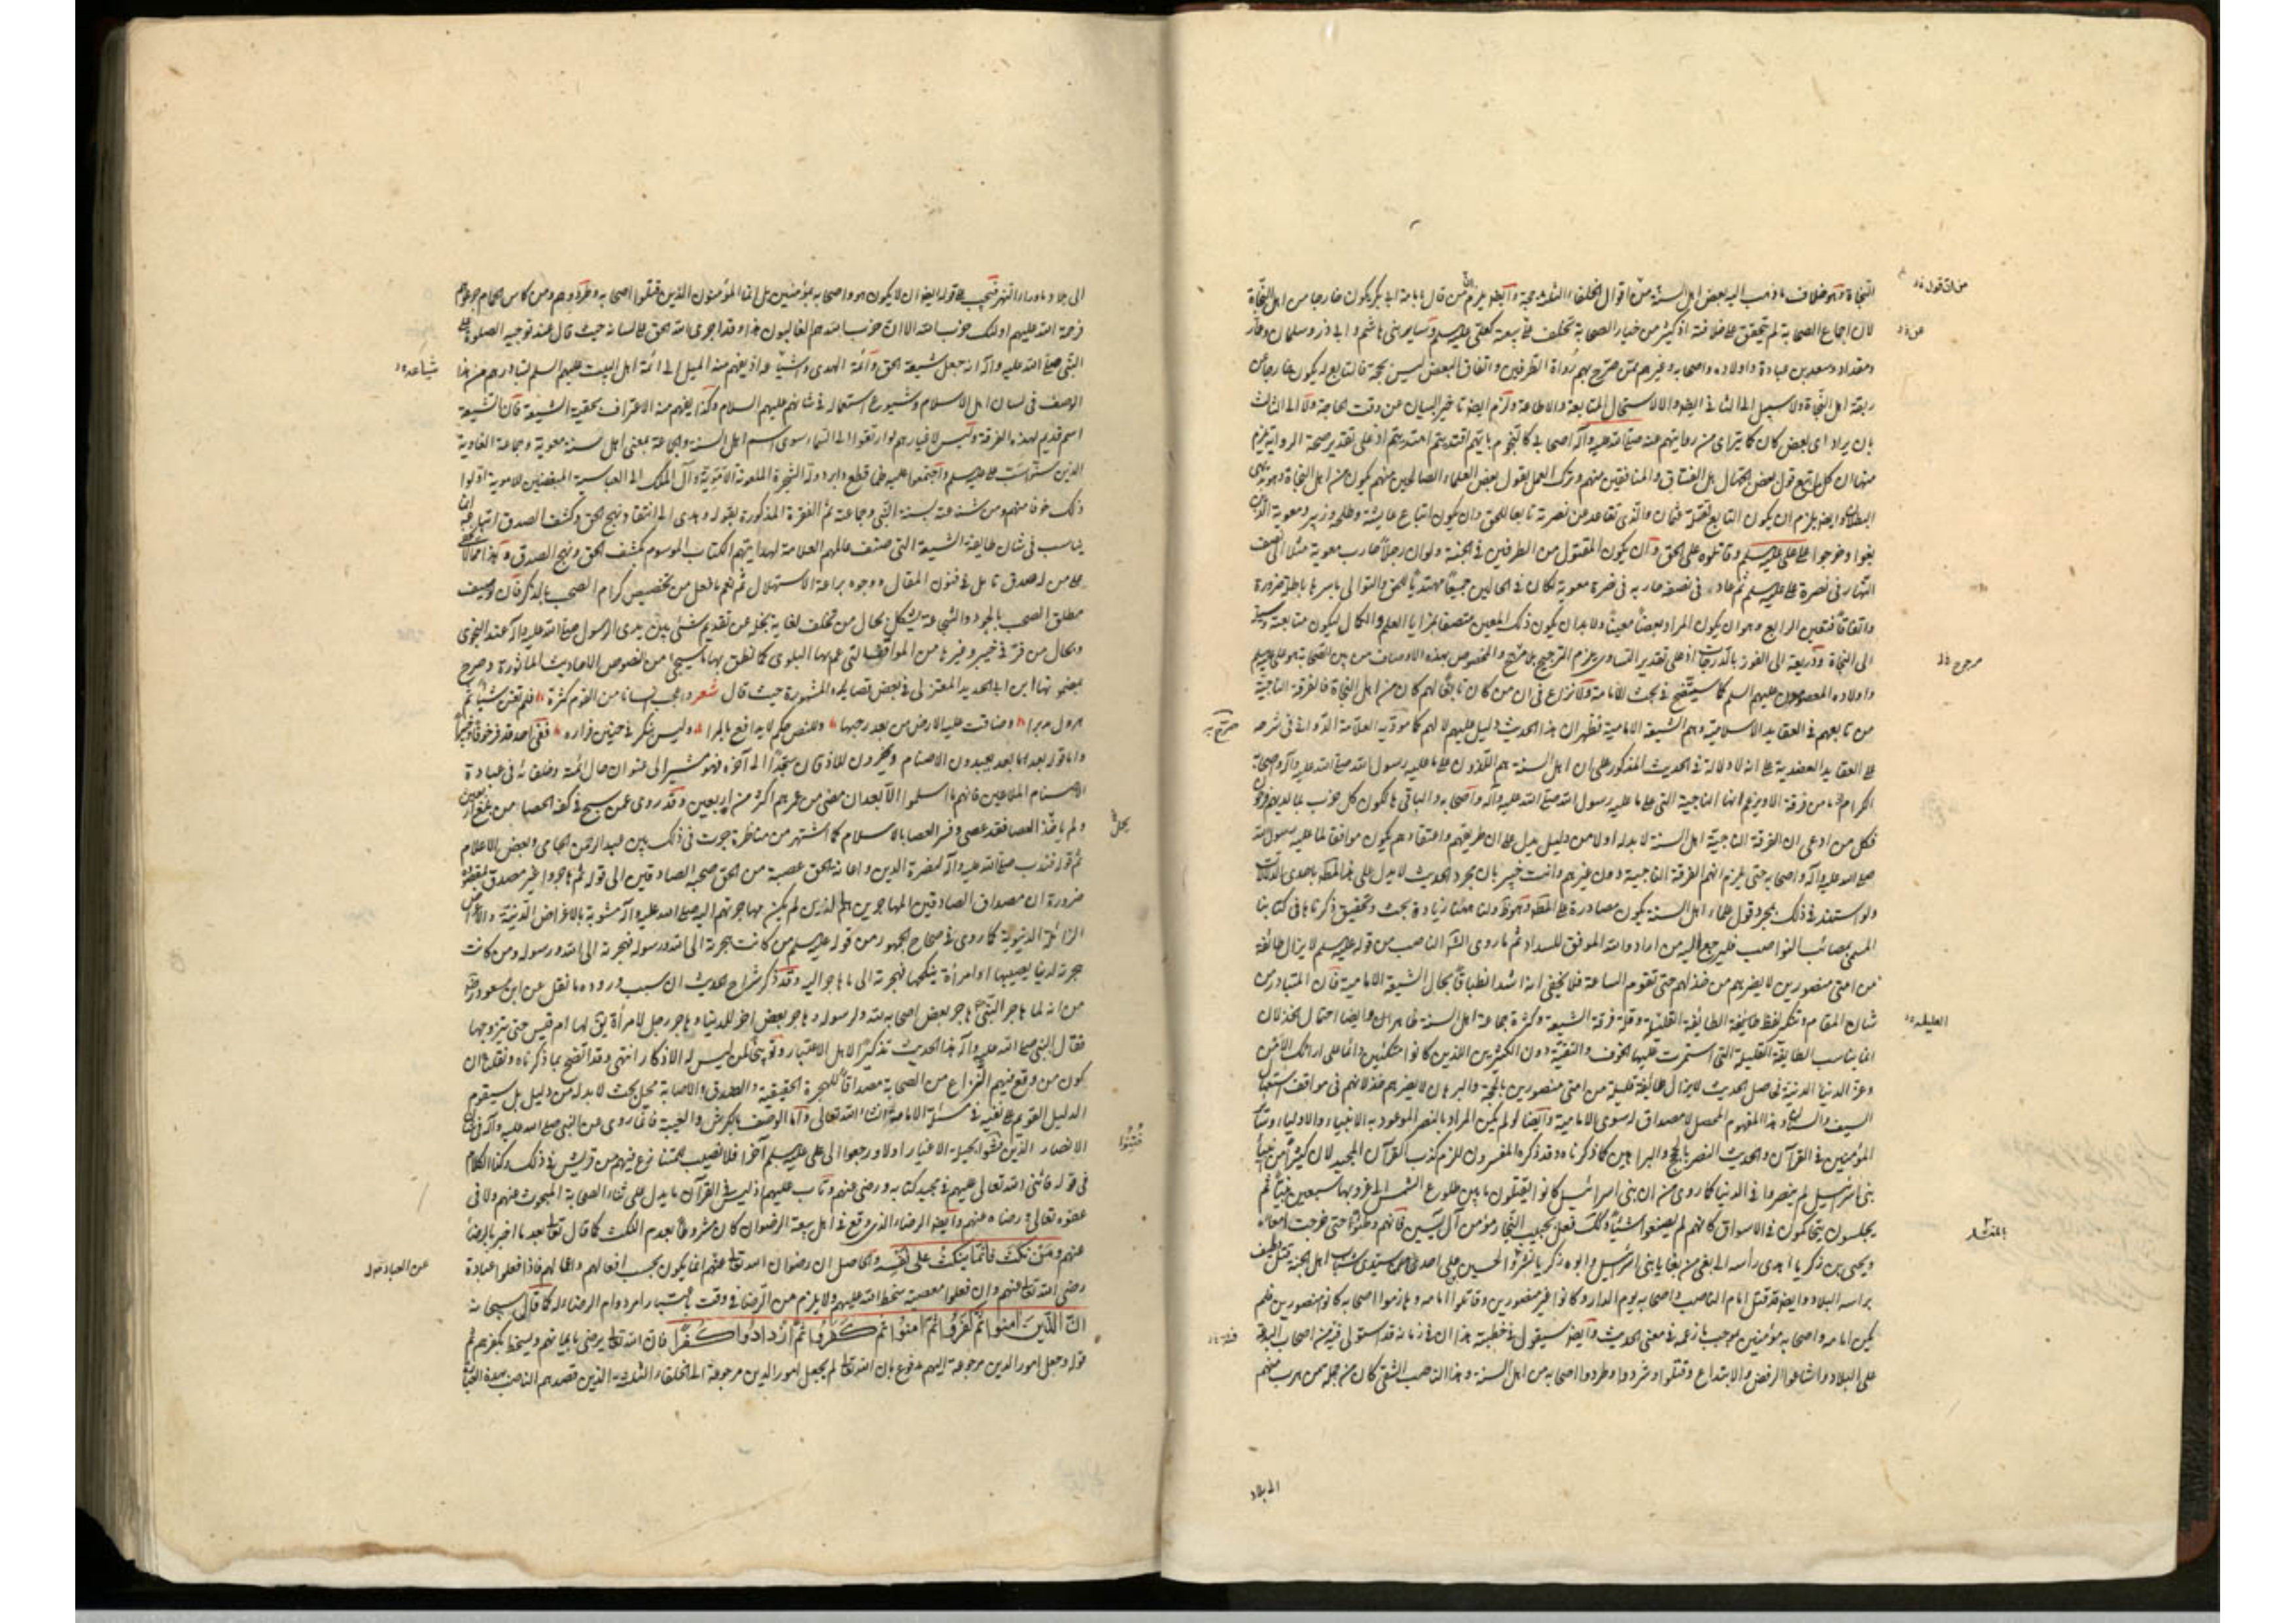 النجاة وهو خلاف ما ذهب اليه بعض اهل السنة من ان اقوال الخلفاء الثلث حجة وايضا يلزم ان من قال بامامة ابي بكر يكون خارجا من اهل النجاة
لان اجماع الصحابة لم يتحقق على خلافته اذ كثير من خيار الصحابة تخلف عن بيعته كعلي عليه السلم وساير بني هاشم وابي ذر وسلمان وعمار
ومقداد وسعد بن عبادة واولاده واصحابه وغيرهم ممن صرح بهم رواة الطرفين واتفاق البعض ليس بحجة فالتابع له يكون خارجا عن
ربقة اهل النجاة ولا سبيل الى الثاني ايضا والا لاستحال المتابعة والاطاعة ولزم ايضا تاخير البيان عن وقت الحاجة ولا الى الثالث
بان يراد اي بعض كان كما يتراءى من روايتهم عنه صلى الله عليه وآله اصحابي كالنجوم بايهم اقتديتم اهتديتم اذ على تقدير صحة الرواية يلزم
منها ان كل من اتبع قول بعض الجهال بل الفساق والمنافقين منهم وترك العمل بقول بعض العلماء الصالحين منهم يكون من اهل النجاة وهو بديهي
البطلان وايضا يلزم ان يكون التابع لقتلة عثمان والذي تقاعد عن نصرته تابعا للحق وان يكون اتباع عايشة وطلحة وزبير ومعوية الذين
بغوا وخرجوا على علي عليه السلم وقاتلوه على الحق وان يكون المقتول من الطرفين في الجنة ولو ان رجلا حارب معوية مثلا الى نصف
النهار في نصرة علي عليه السلم ثم عاد في نصفه حاربه في نصرة معوية لكان في الحالين جميعا مهتديا للحق والتوالي باسرها باطلة ضرورة
واتفاقا فتعين الرابع وهو ان يكون المراد بعضا معينا ولا بد ان يكون ذلك المعين متصفا بمزايا العلم والكمال ليكون متابعته وسيلة
الى النجاة وذريعة الى الفوز بالدرجات اذ على تقدير التساوي يلزم الترجيح بلا مرجح والمخصوص بهذه الاوصاف من بين الصحابة هو علي عليه السلم
واولاده المعصومون عليهم السلم كما سيتضح في بحث الامامة ولا نزاع في ان من كان تابعا لهم كان من اهل النجاة فالفرقة الناجية
من تابعهم في العقايد الاسلامية وهم الشيعة الامامية فظهر ان هذا الحديث دليل عليهم لا لهم كما موه به العلامة الدواني في شرحه
على العقايد العضدية على انه لا دلالة في الحديث المذكور على ان اهل السنة هم الذين على ما عليه رسول الله صلى الله عليه وآله وصحابه
الكرام اذ ما من فرقة الا ويزعم انها الناجية التي على ما عليه رسول الله صلى الله عليه وآله واصحابه والباقي هالكون كل حزب بما لديهم فرحون
فكل من ادعى ان الفرقة الناجية اهل السنة لا بد له اولا من دليل يدل على ان طريقتهم واعتقادهم يكون موافقا لما عليه رسول الله
صلى الله عليه وآله واصحابه حتى يلزم انهم الفرقة الناجية دون غيرهم وانت خبير بان مجرد الحديث لا يدل على هذا المط باحدى الدلالات
ولو استند في ذلك بمجرد قول علماء اهل السنة يكون مصادرة على المط وهو ظ ولنا ههنا زيادة بحث وتحقيق ذكرناها في كتابنا
المسمى بمصائب النواصب فليرجع اليه من اراد والله الموفق للسداد ثم ما روى الناصب من قوله عليه السلم لا يزال طائفة
من امتي منصورين لا يضرهم من خذلهم حتى تقوم الساعة فلا يخفى انه اشد انطباقا بحال الشيعة الامامية فان المتبادر من
شان المقام وتنكير لفظ طايفة الطائفة القليلة وقلة فرقة الشيعة وكثرة جماعة اهل السنة ظاهران وايضا احتمال الخذلان
انما يناسب الطايفة القليلة التي استمرت عليها الخوف والتقية دون الكثيرين الذين كانوا متكئين دائما على ارائك الامن
وعزة الدنيا الدنية فحاصل الحديث لا يزال طائفة قليلة من امتي منصورين بالحجة والبرهان لا يضرهم خذلانهم في مواقف استعمال
السيف والسنان وهذا المفهوم المحصل لا مصداق له سوى الامامية وايضا لو لم يكن المراد بالنصر الموعود به الانبياء والاولياء وسائر
المؤمنين في القرآن والحديث النصر بالحجج والبراهين كما ذكرناه وقد ذكره المفسرون للزم كذب القرآن المجيد لان كثيرا من انبياء
بني اسرئيل لم ينصروا في الدنيا كما روي من ان بني اسرائيل كانوا يقتلون ما بين طلوع الشمس الى غروبها سبعين نبيا ثم
يجلسون يتحاكمون في الاسواق كانهم لم يصنعوا شيئا وكذلك فعل بحبيب النجار مؤمن آل يسين فانهم وطئوه حتى خرجت امعاؤه
ويحيى بن زكريا اهدي رأسه الى بغي من بغايا بني اسرئيل وابوه زكريا نشر والحسين بن علي احد سيدي شباب اهل الجنة قتل وطيف
براسه البلاد وايضا قد قتل امام الناصب واصحابه يوم الدار وكانوا غير منصورين وقاتلوا امامه وهازموا اصحابه كانوا منصورين فلم
يكن امامه واصحابه مؤمنين بموجب ما زعمه في معنى الحديث وايضا سيقول في خطبته هذا ان في زمانه قد استولى فئة من اصحاب البدعة
على البلاد واشاعوا الرفض والابتداع وقتلوا وشردوا وطردوا اصحابه من اهل السنة وهذا الناصب الشقي كان من جملة من هرب منهم
الى بلاد
من ان قول
عن
مرجح
صرح به
القليلة
المنشار
فئة
الى بلاد ما وراء النهر فيجب على قوله ايضا ان لا يكون هو واصحابه مؤمنين بل انما المؤمنون الذين قتلوا اصحابه وطردوهم ومن كاس الحمام جرعوهم
فرحمة الله عليهم اولئك حزب الله الا ان حزب الله هم الغالبون هذا وقد اجرى الله الحق على لسانه حيث قال عند توجيه الصلوة على
النبي صلى الله عليه وآله انه جعل شيعة الحق وائمة الهدى واشياعه اذ يفهم منه الميل الى ائمة اهل البيت عليهم السلم لتبادرهم من هذا
الوصف في لسان اهل الاسلام وشيوع استعماله في شانهم عليهم السلام وكذا يفهم منه الاعتراف بحقية الشيعة فان الشيعة
اسم قديم لهذه الفرقة وليس لاغيارهم لو ارتقوا الى السماء سوى اسم اهل السنة والجماعة بمعنى اهل سنة معوية وجماعة الغاوية
الذين سنوا سب علي عليه السلم واجتمعوا عليه فلما قطع دابر دولة الشجرة الملعونة الاموية وآل الملك الى العباسية المبغضين للاموية اولوا
ذلك خوفا منهم ومن شناعته بسنة النبي وجماعته ثم الفقرة المذكورة بقوله وهدى الى انتقاد نهج الحق وكشف الصدق اتباعه انما
يناسب في شان طايفة الشيعة التي صنف عالمهم العلامة لهدايتهم الكتاب الموسوم بكشف الحق ونهج الصدق وهذا مما لا يخفى
على من له صدق تامل في فنون المقال ووجوه براعة الاستهلال ثم نعم ما فعل من تخصيص كرام الصحب بالذكر فان توصيف
مطلق الصحب بالجود والشجاعة يشكل بحال من تخلف لغاية بخله عن تقديم شيء بين يدى الرسول صلى الله عليه وآله عند النجوى
وبحال من فر في خيبر وغيرها من المواقف التي عم بها البلوى كما نطق بها ما سيجيء من النصوص والاحاديث الماثورة وصرح
بمضمونها ابن ابي الحديد المعتزلي في بعض قصايده المشهورة حيث قال شعر واعجب انسانا من القوم كثرة فلم تغن شيئا ثم
هرول مدبرا وضاقت عليه الارض من بعد رحبها وللنص حكم لا يدافع بالمرا وليس بنكر في حنين فراره ففي احد قد فر خوفا وخيبرا
واما قوله بعد ما بعد يعبدون الاصنام ويخرون للاذقان سجدا الى آخره فهو مشير الى عنوان حال ائمته وخلفائه في عبادة
الاصنام الملاعين فانهم ما اسلموا الا بعد ان مضى من عمرهم اكثر من اربعين وقد روي عن سبح في كفه الحصا من بلغ اربعين
ولم ياخذ العصا فقد عصى وفسر العصا بالاسلام كما اشتهر من مناظرة جرت في ذلك بين عبد الرحمن الجامي وبعض الاعلام
ثم قوله فندب صلى الله عليه وآله لنصرة الدين واعانة الحق عصبة من الحق صحبه الصادقين الى قوله ثم هاجروا غير مصدق لمقصوده
ضرورة ان مصداق الصادقين المهاجرين هم الذين لم يكن مهاجرتهم اليه صلى الله عليه وآله مشوبة بالاغراض الدنية والاعراض
الزائلة الدنيوية كما روي في صحاح الجمهور من قوله عليه السلم من كانت هجرته الى الله ورسوله فهجرته الى الله ورسوله ومن كانت
هجرته لدنيا يصيبها او امرأة ينكحها فهجرته الى ما هاجر اليه وقد ذكر شراح الحديث ان سبب وروده ما نقل عن ابن مسعود رضي الله عنه
من انه لما هاجر النبي هاجر بعض اصحابه لله ولرسوله وهاجر بعض اخر للدنيا وهاجر رجل لامرأة يق لها ام قيس حتى يتزوجها
فقال النبي صلى الله عليه وآله هذا الحديث تذكيرا لاهل الاعتبار وتوبيخا لمن ليس له الاذكار انتهى وقد اتضح بما ذكرناه ونقلناه ان
كون من وقع فيهم النزاع من الصحابة مصداقا للهجرة الحقيقية والصدق والاصابة محل بحث لا بد له من دليل بل سيقوم
الدليل القويم على نفيه في مسئلة الامامة ان شاء الله تعالى واما الوصف بالكرش والعيبة فانما روي عن النبي صلى الله عليه وآله في شان
الانصار الذين فتنوا بحيلة الاغيار اولا ورجعوا الى علي عليه السلم آخرا فلا نصيب للمتنازع فيهم من قريش في ذلك وكذا الكلام
في قوله فاثنى الله تعالى عليهم في مجيد كتابه ورضي عنهم وتاب عليهم اذ ليس في القرآن ما يدل على ثناء الصحابة المبحوث عنهم ولا في
عفوه تعالى ورضاه عنهم وايضا الرضاء الذي وقع في اهل بيعة الرضوان كان مشروطا بعدم النكث كما قال تعالى بعد ما اخبر بالرضاء
عنهم ومن نكث فانما ينكث على نفسه والحاصل ان رضوان الله تعالى عنهم انما يكون بحسب افعالهم واعمالهم فاذا فعلوا عبادة
رضي الله تعالى عنهم وان فعلوا معصية سخط الله عليهم ولا يلزم من الرضاء في وقت باعتبار امر دوام الرضاء له كما قال سبحانه
ان الذين امنوا ثم كفروا ثم امنوا ثم كفروا ثم ازدادوا كفرا فان الله تعالى يرضى بايمانهم ويسخط بكفرهم ثم
قوله وجعل امور الدين مرجوعة اليهم مدفوع بان الله تعالى لم يجعل امور الدين مرجوعة الى الخلفاء الثلثة الذين قصدهم الناصب بهذه العبارة
فتنوا